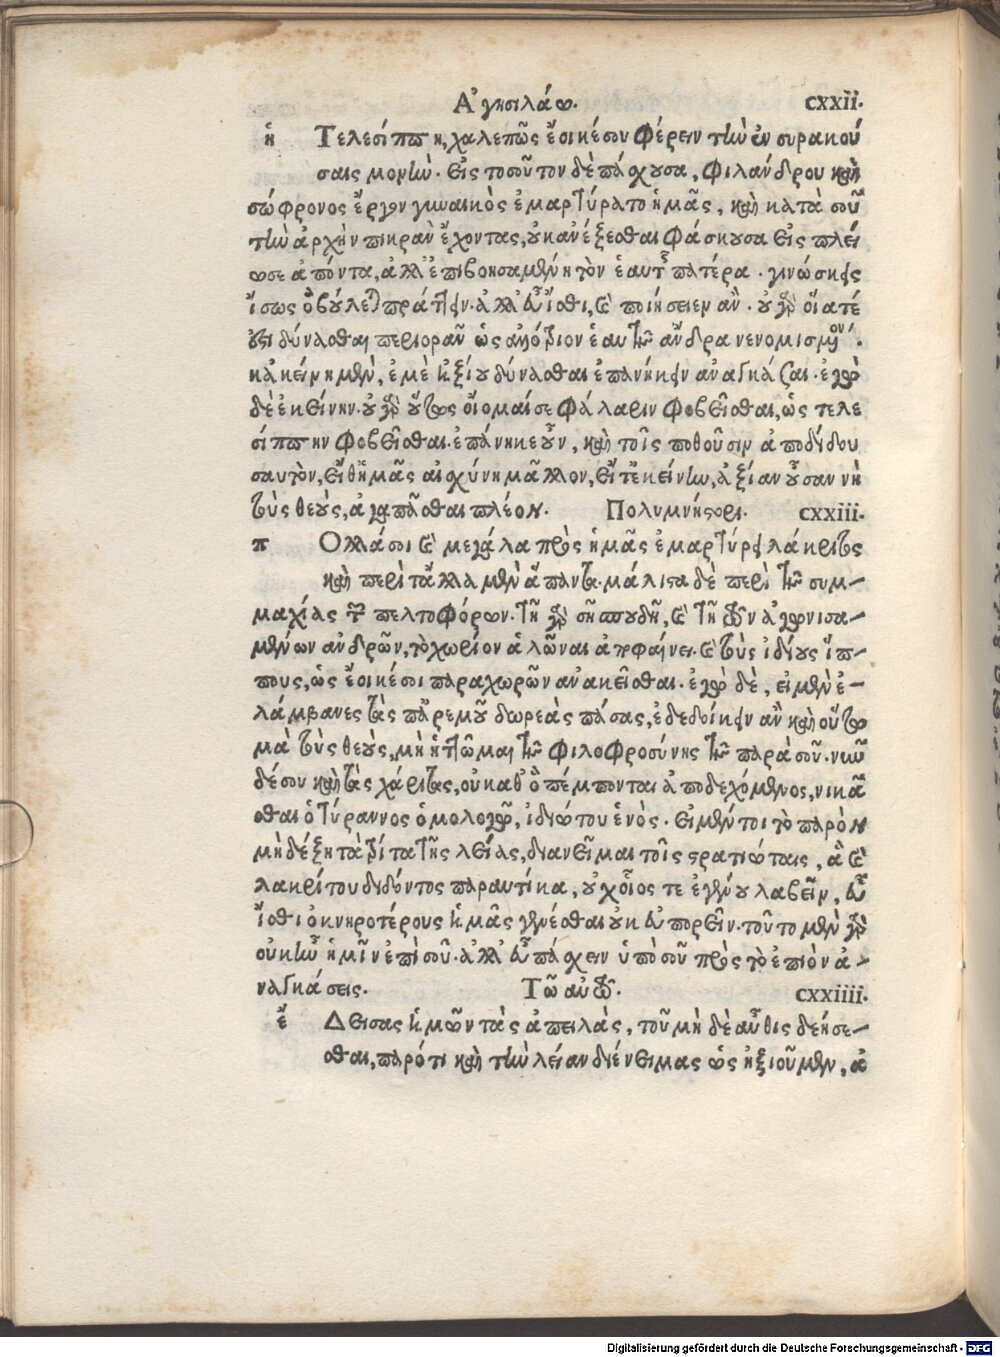 Ἀγησιλάῳ. CXXII.
ἡ Τελεσίππη, χαλεπῶς ἔοικέ σου φέρειν τὴν ἐν συρακού
σαις μονήν. εἰς τοσοῦτον δὲ πάσχουσα, φιλάνδρου καὶ
σώφρονος ἔργον γυναικὸς ἐμαρτύρατο ἡμᾶς, καὶ κατὰ σοῦ
τὴν ἀρχὴν πικρὰν ἔχοντας, οὐκ ἀνέξεσθαι φάσκουσα εἰς πλεί
ω σε ἀπόντα, ἀλλ' ἐπιβοησαμένη τὸν ἑαυτῆς πατέρα. γινώσκεις
ἴσως ὃ βούλεται πράττειν. ἀλλ' εὖ ἴσθι, καὶ ποιήσειεν ἄν. οὐ γὰρ οἵα τέ
ἐστι δύνασθαι περιορᾶν ὡς ἀνόβιον ἑαυτῆς ἄνδρα νενομισμένον.
κἀκείνη μὲν, ἐμὲ ἠξίου δύνασθαι ἐπανήκειν ἀναγκάζαι. ἐγὼ
δὲ ἐκείνην. οὐ γὰρ οὕτως οἴομαί σε φάλαριν φοβεῖσθαι, ὡς τελε
σίππην φοβεῖσθαι. ἐπάνηκε οὖν, καὶ τοῖς ποθοῦσιν ἀποδίδου
σαυτὸν, εἴθ' ἡμᾶς αἰσχύνῃ μᾶλλον, εἴτ' ἐκείνην, ἀξίαν οὖσαν νὴ
τοὺς θεοὺς, ἀγαπᾶσθαι πλέον. Πολυμνήστορι. CXXIII.
π Ολλά σοι καὶ μεγάλα πρὸς ἡμᾶς ἐμαρτύρει λάκριτος
καὶ περὶ τἄλλα μὲν ἅπαντα. μάλιστα δὲ περὶ τῆς συμ-
μαχίας τῶν πελτοφόρων. τῇ γὰρ σῇ σπουδῇ, καὶ τῇ τῶν ἀγωνισα-
μένων ἀνδρῶν, τὸ χωρίον ἁλῶναι ἀποφαίνει. καὶ τοὺς ἰδίους ἵπ-
πους, ὡς ἔοικέ σοι παραχωρῶν ἀνακεῖσθαι. ἐγὼ δὲ, εἰ μὲν ἐ-
λάμβανες τὰς παρ' ἐμοῦ δωρεὰς πάσας, ἐδεδοίκειν ἂν καὶ οὕτω
μὰ τοὺς θεοὺς, μὴ ἡττῶμαι τῆς φιλοφροσύνης τῆς παρὰ σοῦ. νῦν
δέ σου καὶ τὰς χάριτας, οὐ καθ' ὃ πέμπονται ἀποδεχόμενος, νικᾶ
σθαι ὁ τύραννος ὁμολογῶ, ἰδιώτου ἑνός. εἰ μέντοι τὸ παρὸν
μὴ δέξῃ τὰ βία τῆς λείας, διανεῖμαι τοῖς στρατιώταις, ἃ καὶ
λακρίτου διδόντος παραυτίκα, οὐχ οἷός τε ἐγένου λαβεῖν, εὖ
ἴσθι ὀκνηροτέρους ἡμᾶς γενέσθαι οὐκ εὐπορεῖν. τοῦτο μὲν γὰρ
οὐκ ἦν ἡμῖν ἐπὶ σοῦ. ἀλλ' εὖ πάσχειν ὑπὸ σοῦ πρὸς τὸ ἐπιὸν ἀ-
ναγκάσεις. Τῷ αὐτῷ. CXXIIII.
ἔ Δεισας ἡμῶν τὰς ἀπειλὰς, τοῦ μηδὲ αὖθις δεήσε-
σθαι, παρότι καὶ τὴν λείαν διένειμας ὡς ἠξιοῦμεν, ἀ
Digitalisierung gefördert durch die Deutsche Forschungsgemeinschaft - DFG